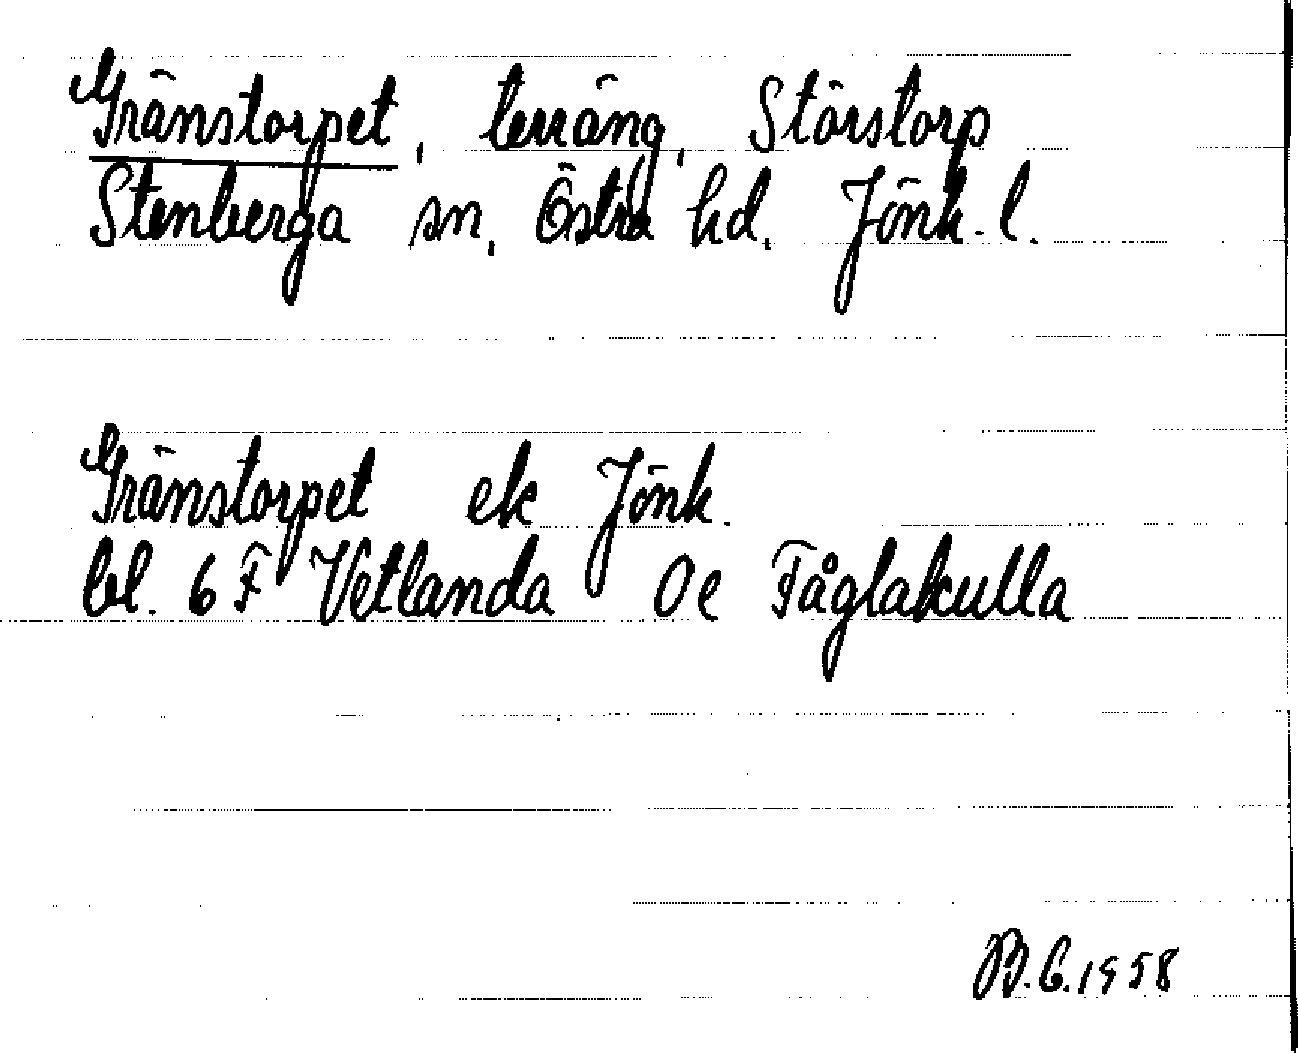 Gränstorpet, terräng, Störstorp
Stenberga sn, Östra hd, Jönk. l.
Gränstorpet ek Jönk.
bl. 6 F Vetlanda 0 e Fåglakulla
B.G. 1958